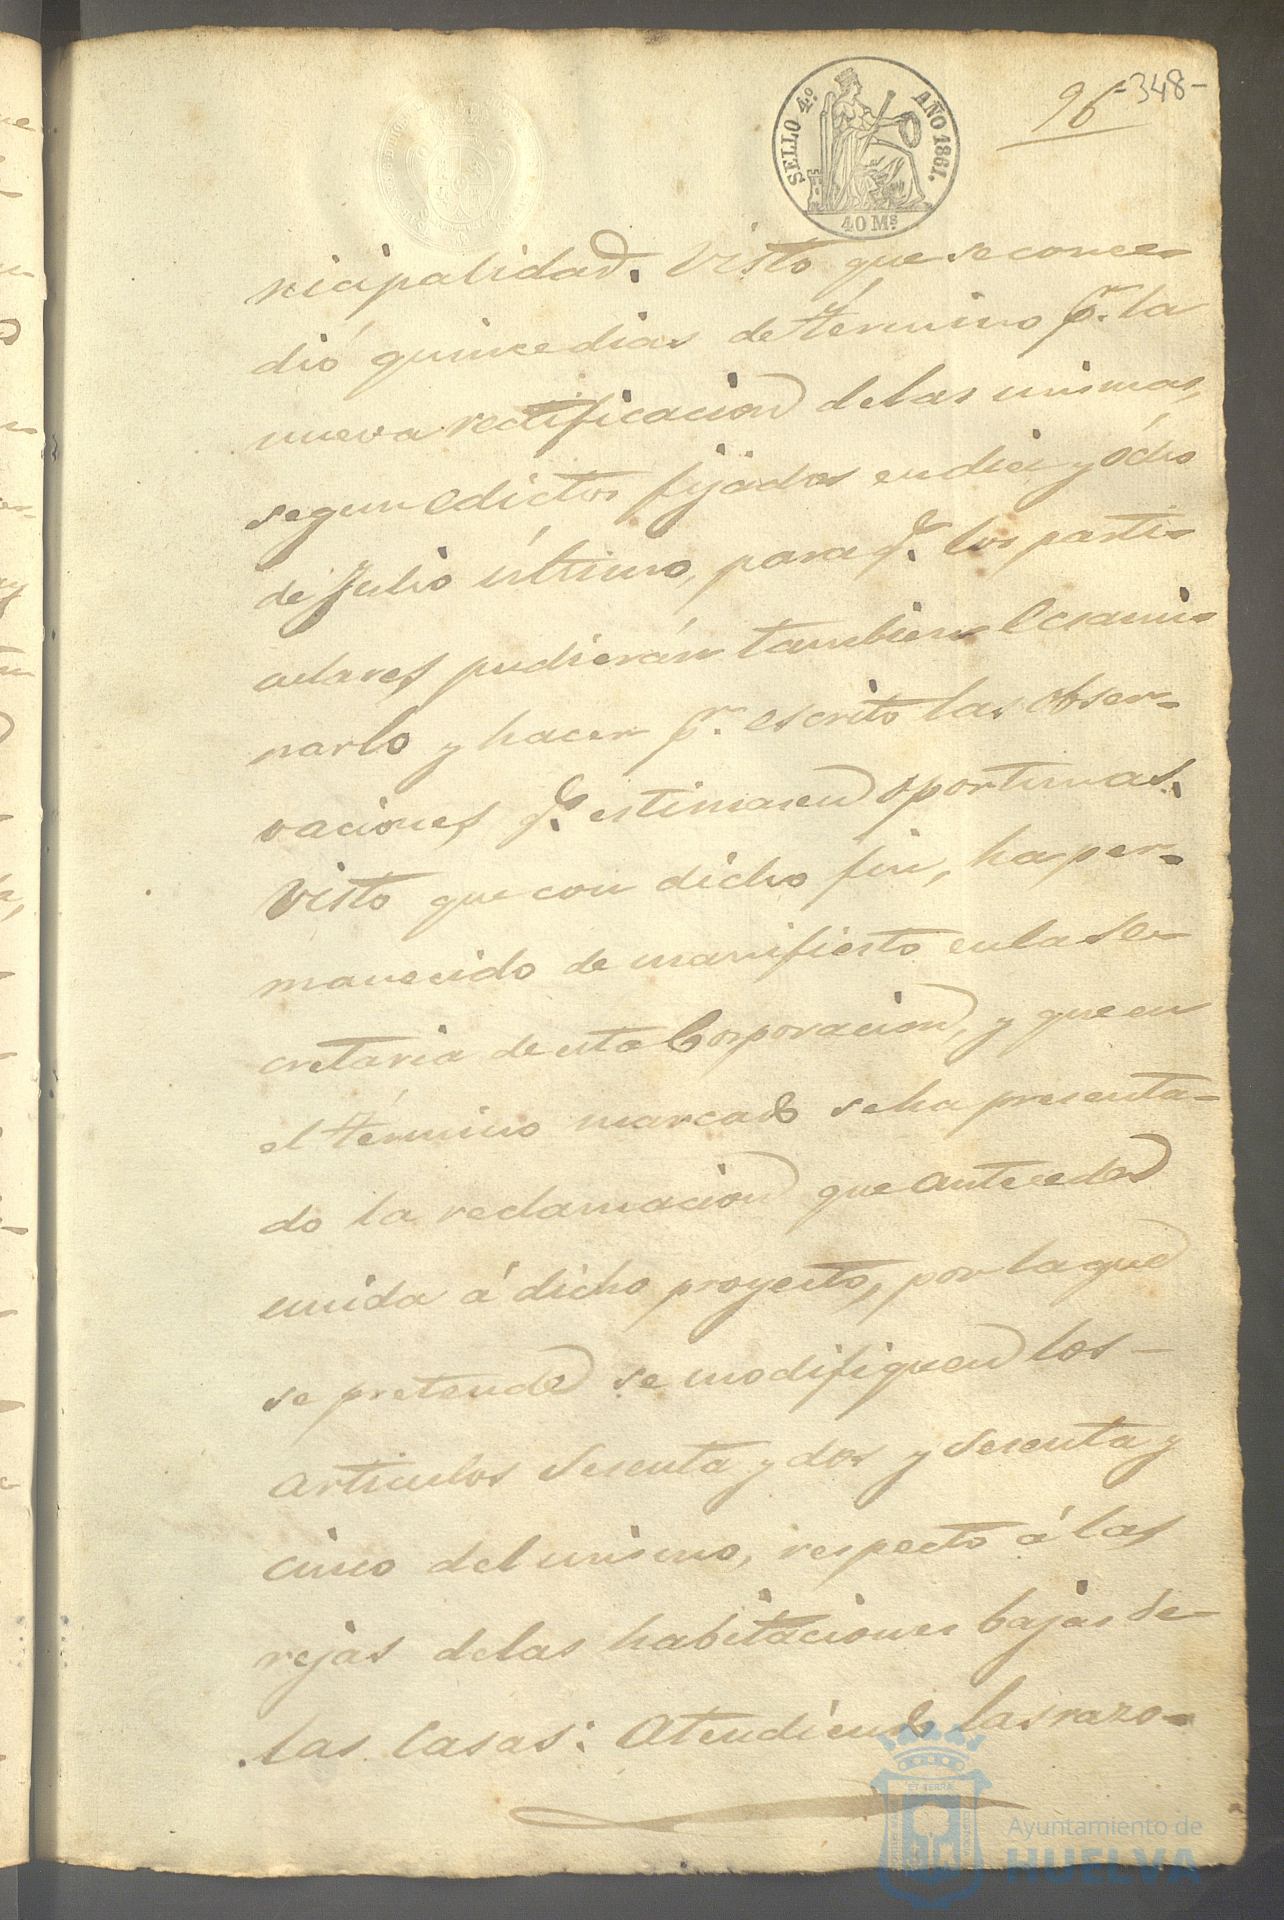 96 -348-
SELLO 4.º AÑO 1861.
40 Ms
nicipalidad. Visto que se conce-
dió quince dias de término pr. la
nueva rectificacion de las mismas,
segun edictos fijados en diez y ocho
de Julio último, para q.e los parti-
culares pudierán tambien ecsami-
narlo y hacer pr. escrito las obser-
vaciones q.e estimasen oportunas.
Visto que con dicho fin, ha per-
manecido de manifiesto en la Se-
cretaria de esta Corporacion, y que en
el término marcado se ha presenta-
do la reclamacion que antecede
unida á dicho proyecto, por la que
se pretende se modifiquen los -
articulos Sesenta y dos y Sesenta y
cinco del mismo, respecto á las
rejas de las habitaciones bajas de-
las Casas: Atendiendo las razo-
ET TERRÆ
Ayuntamiento de
HUELVA